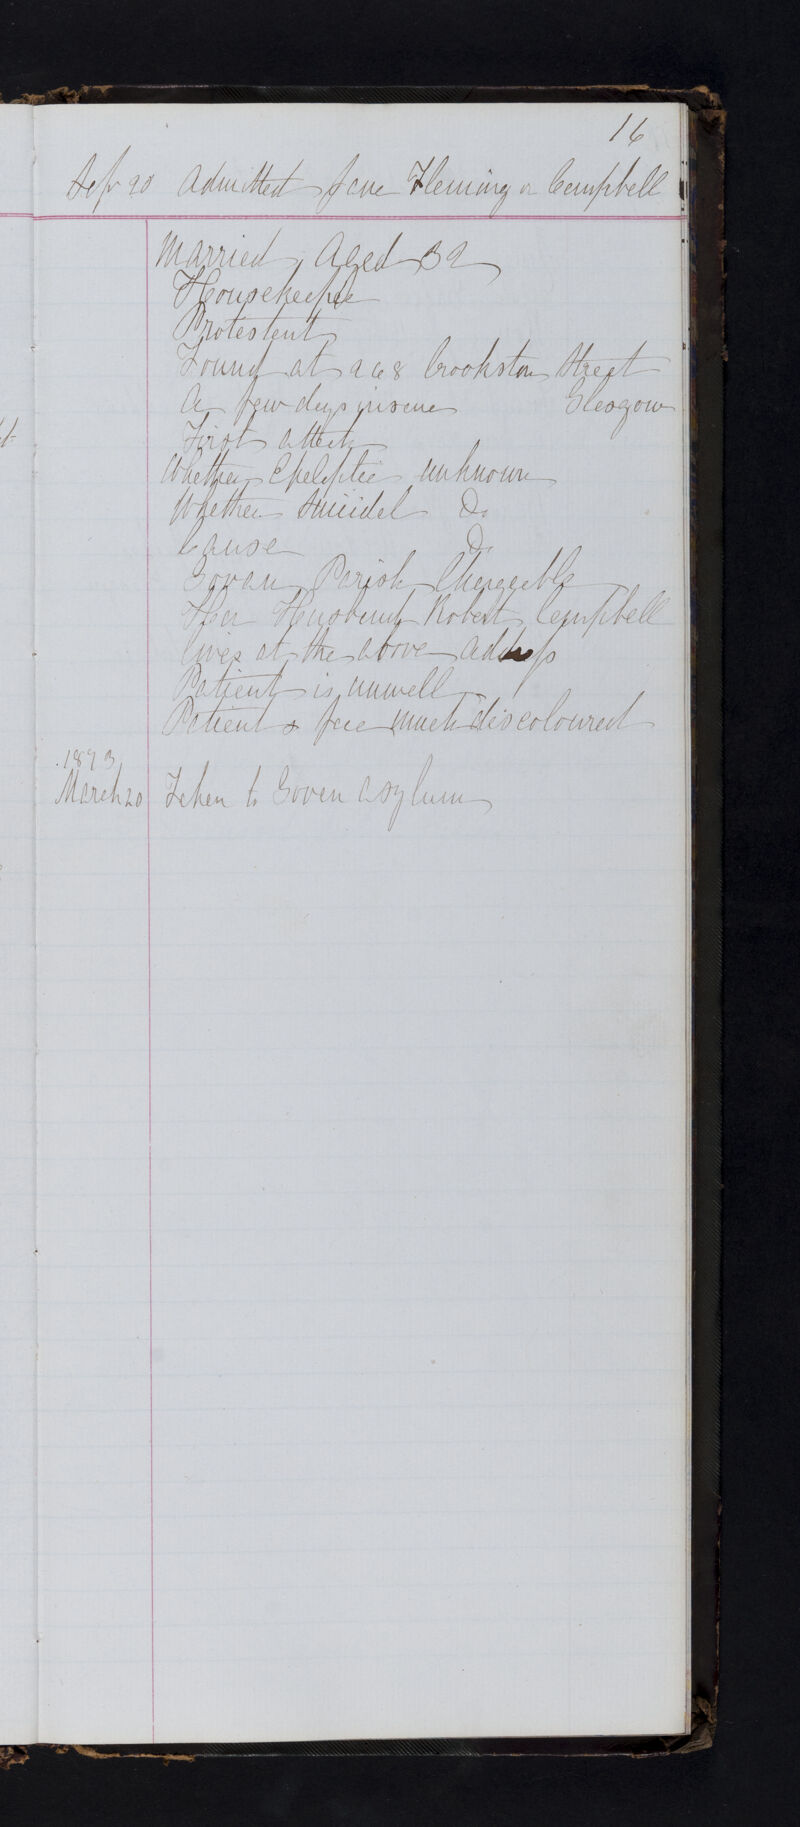 16
Sep 20 Admitted Jane Fleming or Campbell
Married Aged 32
Housekeeper
Protestant
Found at 268 Crookston Street
A few days insane Glasgow
First attack
Whether Epileptic unknown
Whether Suicidal Do
Cause Do
Govan Parish Chargeable
Her Husband Robert Campbell
lives at the above address
Patient is unwell
Patient s face much discoloured
1873
March 20 Taken to Govan Asylum